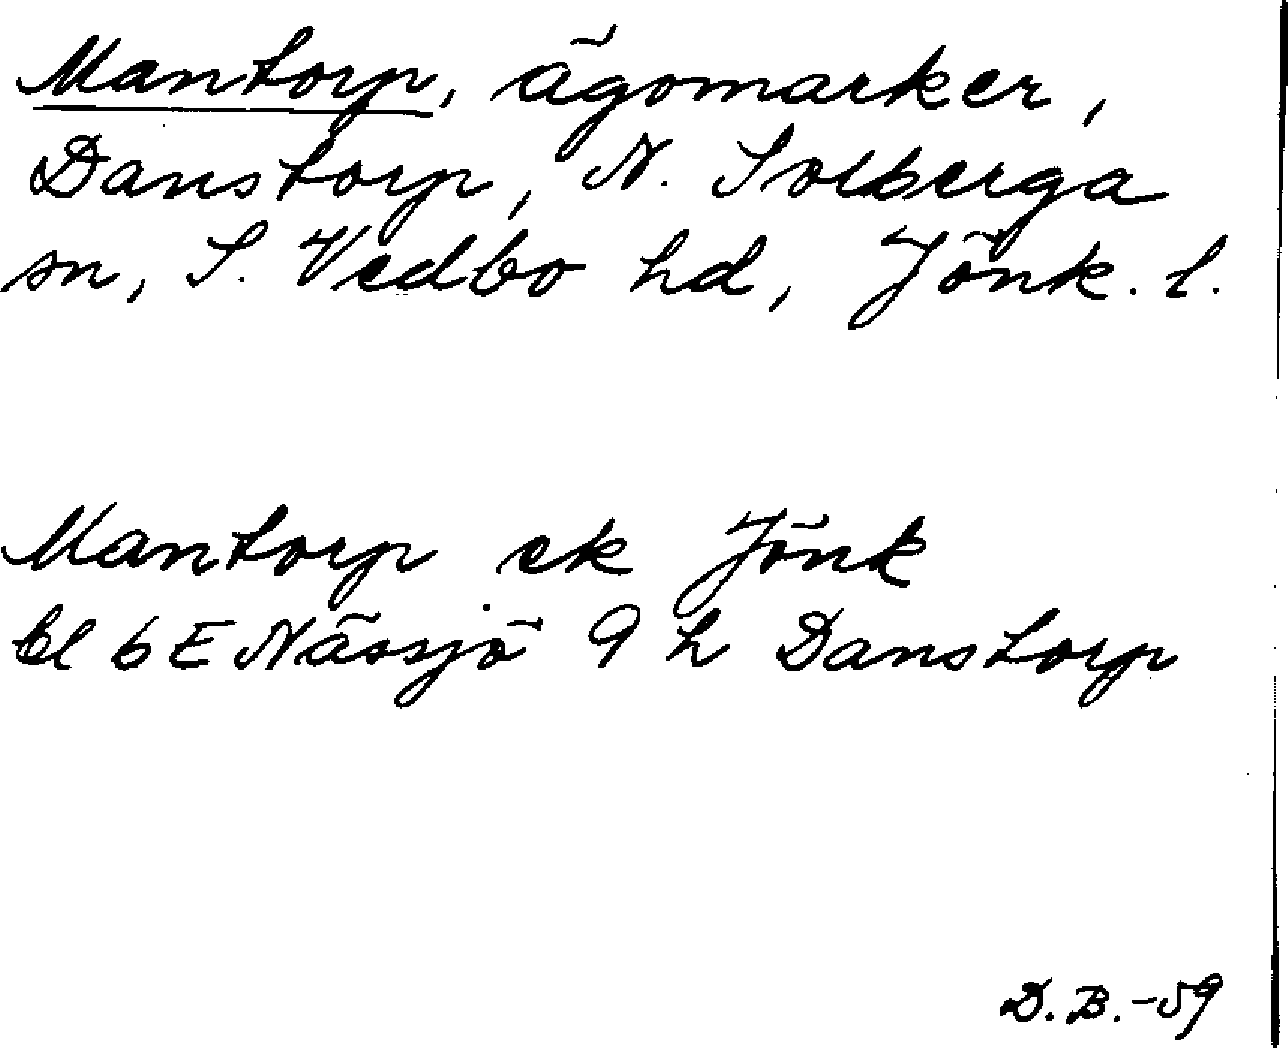 Mantorp, ägomarker,
Danstorp, N. Solberga
sn, S. Vedbo hd, Jönk. l.
Mantorp ek Jönk
bl 6 E Nässjö 9 h Danstorp
D.B.-59